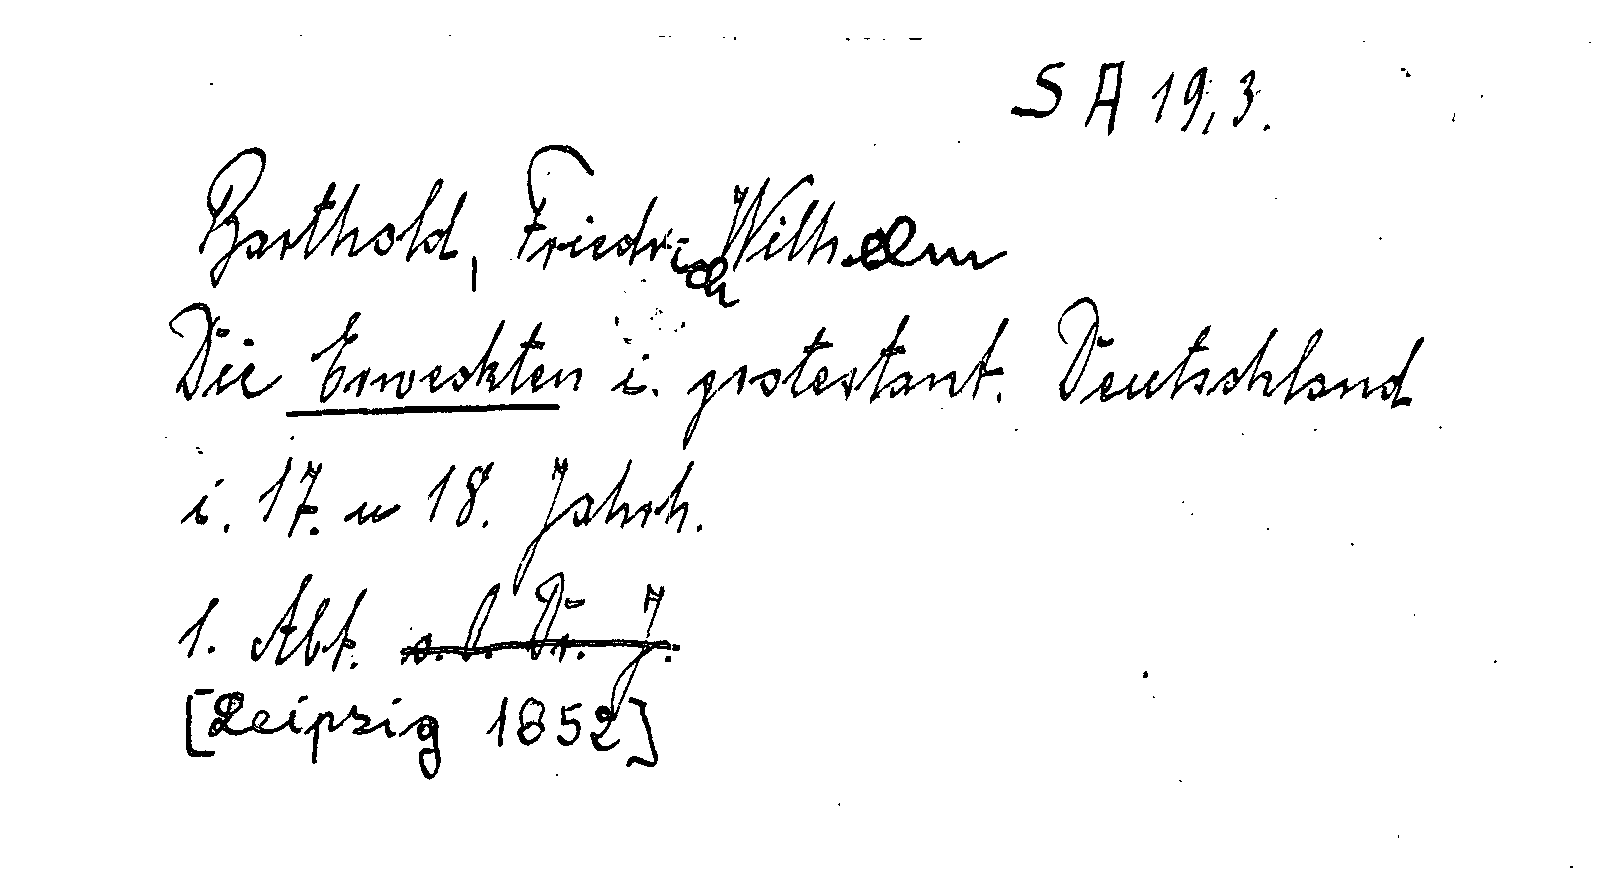 S A 19,3.
Barthold, Friedrich Wilhelm
Die Erweckten i. protestant. Deutschland
i. 17. u 18. Jahrh.
1. Abt. o. O. Dr. J.
[Leipzig 1852]